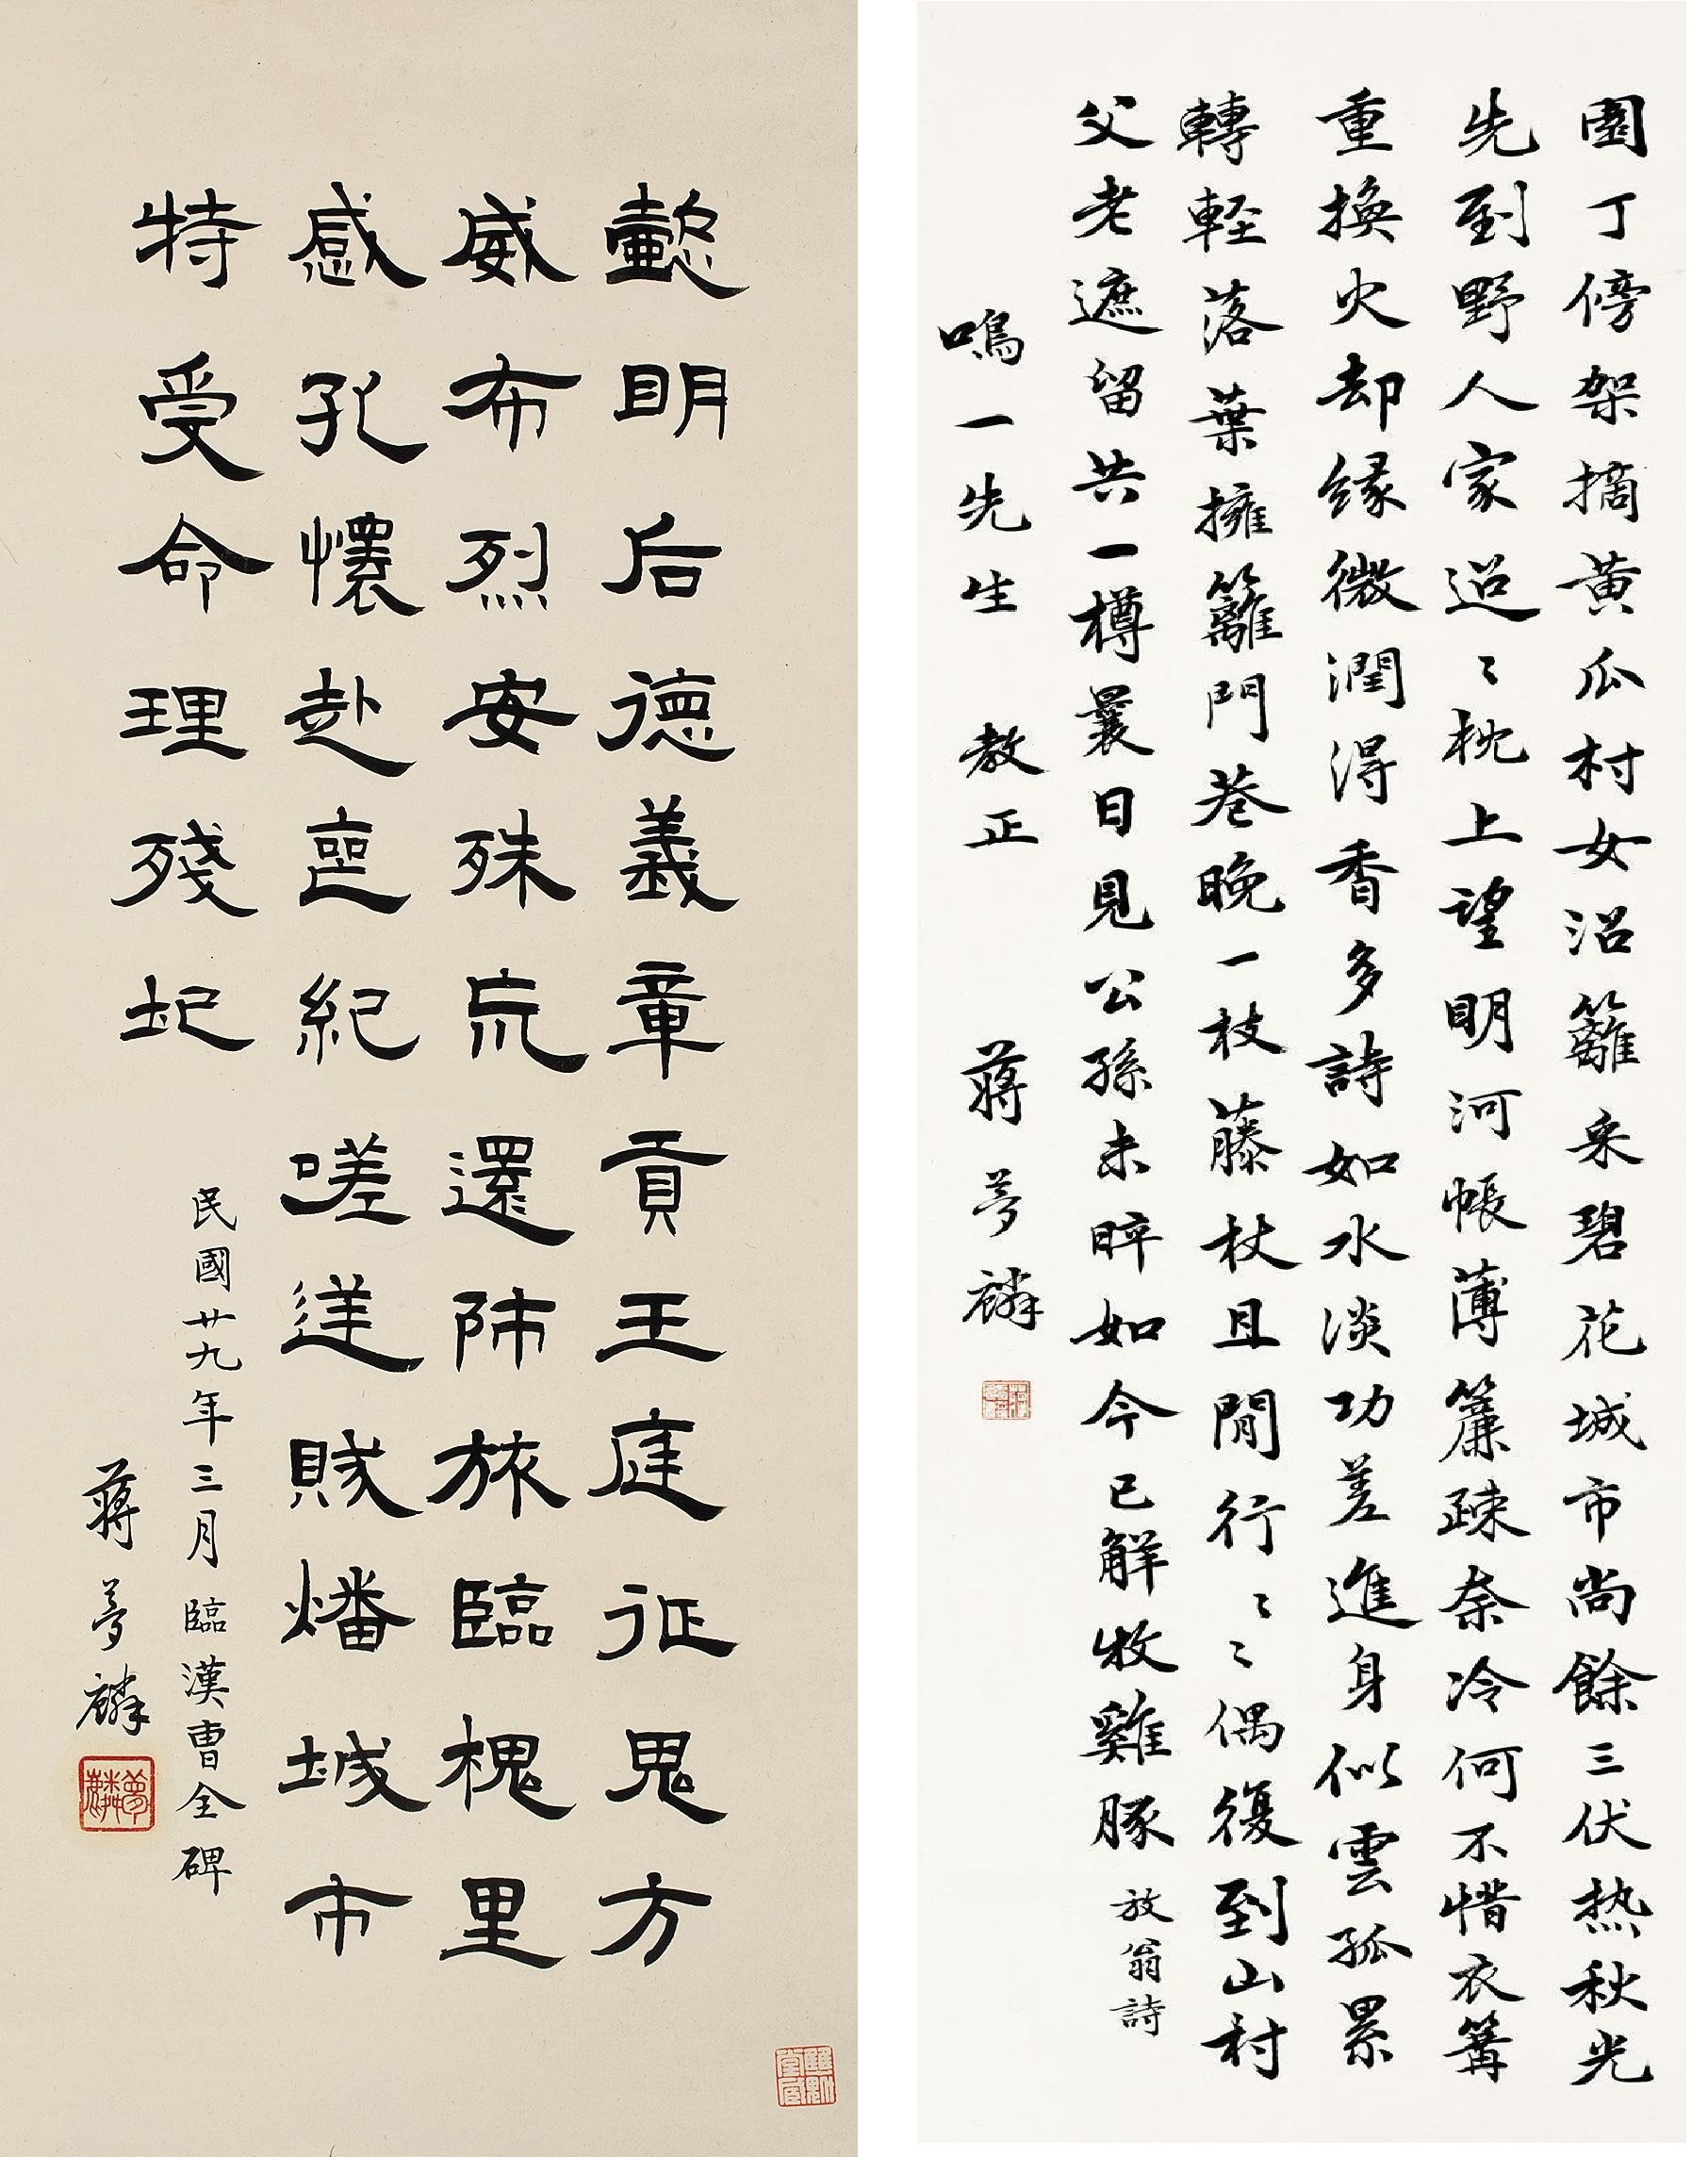 懿明后德義章貢王庭征鬼方
威布烈安殊巟還師旅臨槐里
感孔懷赴喪紀嗟逆賊燔城市
特受命理殘圯
民國廿九年三月臨漢曹全碑
蔣夢麟
夢麟
園丁傍架摘黃瓜村女沿籬采碧花城市尚餘三伏热秋光
先到野人家迢〻枕上望明河帳薄簾疎奈冷何不惜衣篝
重換火却緣微潤得香多詩如水淡功差進身似雲孤累
轉輕落葉擁籬門巷晚一枝藤杖且閒行〻〻偶復到山村
父老遮留共一樽曩日見公孫未晬如今已解牧雞豚 放翁詩
鳴一先生 教正 蔣夢麟